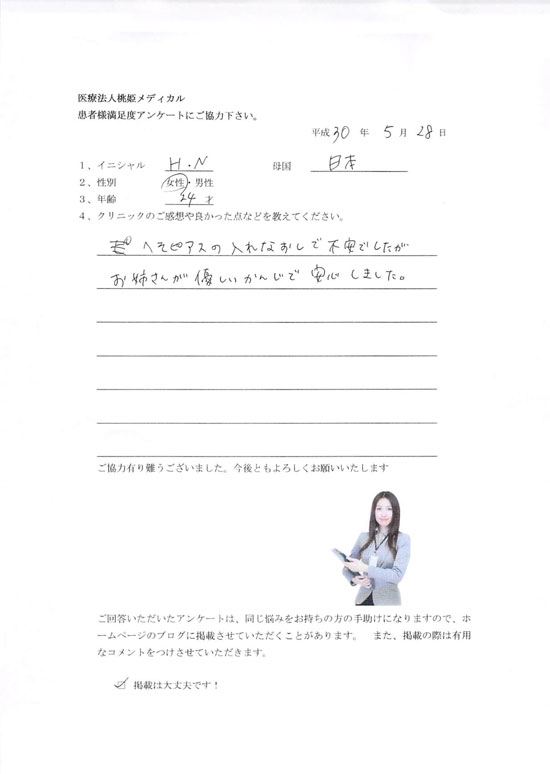 医療法人桃姫メディカル
患者様満足度アンケートにご協力下さい。
平成30年 5月 28日
1、イニシャル H.N 母国 日本
2、性別 女性・男性
3、年齢 24才
4、クリニックのご感想や良かった点などを教えてください。
へそピアスの入れなおしで不安でしたが
お姉さんが優しいかんじで安心しました。
ご協力有り難うございました。今後ともよろしくお願いいたします
ご回答いただいたアンケートは、同じ悩みをお持ちの方の手助けになりますので、ホ
ームページのブログに掲載させていただくことがあります。 また、掲載の際は有用
なコメントをつけさせていただきます。
☑ 掲載は大丈夫です!